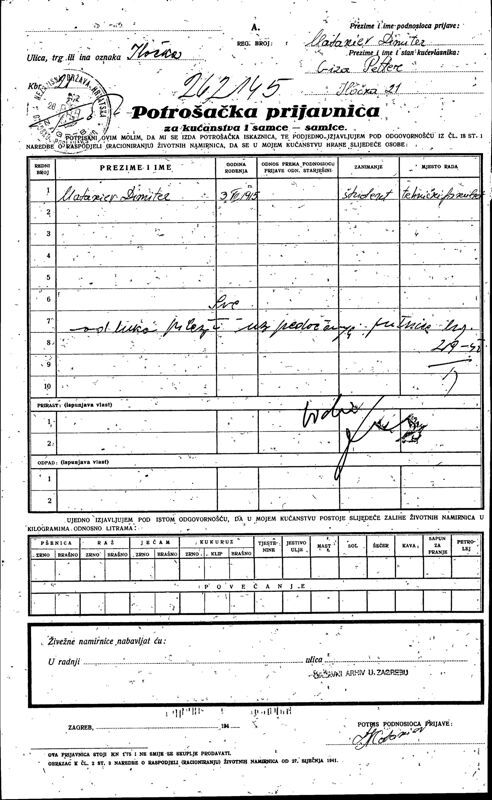 A.
REG. BROJ:
Prezime i ime podnosioca prijave:
Mataniev Dimiter
Ulica, trg ili ina oznaka Iločka
Prezime i ime i stan kućevlasnika:
Giza Petter
Iločka 21
Kbr. 21
262145
Potrošačka prijavnica
za kućanstva i samce — samice.
POTPISANI OVIM MOLIM, DA MI SE IZDA POTROŠAČKA ISKAZNICA, TE PODJEDNO IZJAVLJUJEM POD ODGOVORNOŠĆU IZ ČL. 18 ST. 1
NAREDBE O RASPODJELI (RACIONIRANJU) ŽIVOTNIH NAMIRNICA, DA SE U MOJEM KUĆANSTVU HRANE SLIJEDEĆE OSOBE:
REDNI BROJ PREZIME I IME GODINA ROĐENJA ODNOS PREMA PODNOSIOCU PRIJAVE ODN. STARJEŠINI ZANIMANJE MJESTO RADA
1 Mataniev Dimiter 1915 student tehnički fakultet
2
3
4
5
6
7
8
9
10
PRIRAST: (ispunjava vlast)
1
2
OTPAD: (ispunjava vlast)
1
2
UJEDNO IZJAVLJUJEM POD ISTOM ODGOVORNOŠĆU, DA U MOJEM KUĆANSTVU POSTOJE SLIJEDEĆE ZALIHE ŽIVOTNIH NAMIRNICA U
KILOGRAMIMA ODNOSNO LITRAMA:
PŠENICA RAŽ JEČAM KUKURUZ TJESTENINE JESTIVO ULJE MAST SOL ŠEĆER KAVA SAPUN ZA PRANJE PETROLEJ
ZRNO BRAŠNO ZRNO BRAŠNO ZRNO BRAŠNO ZRNO KLIP BRAŠNO
POVEĆANJE
Živežne namirnice nabavljat ću:
U radnji ulica
DRŽAVNI ARHIV U ZAGREBU
ZAGREB, 194
POTPIS PODNOSIOCA PRIJAVE:
OVA PRIJAVNICA STOJI KN 1.75 I NE SMIJE SE SKUPLJE PRODAVATI.
OBRAZAC K ČL. 2 ST. 3 NAREDBE O RASPODJELI (RACIONIRANJU) ŽIVOTNIH NAMIRNICA OD 27. SIJEČNJA 1941.